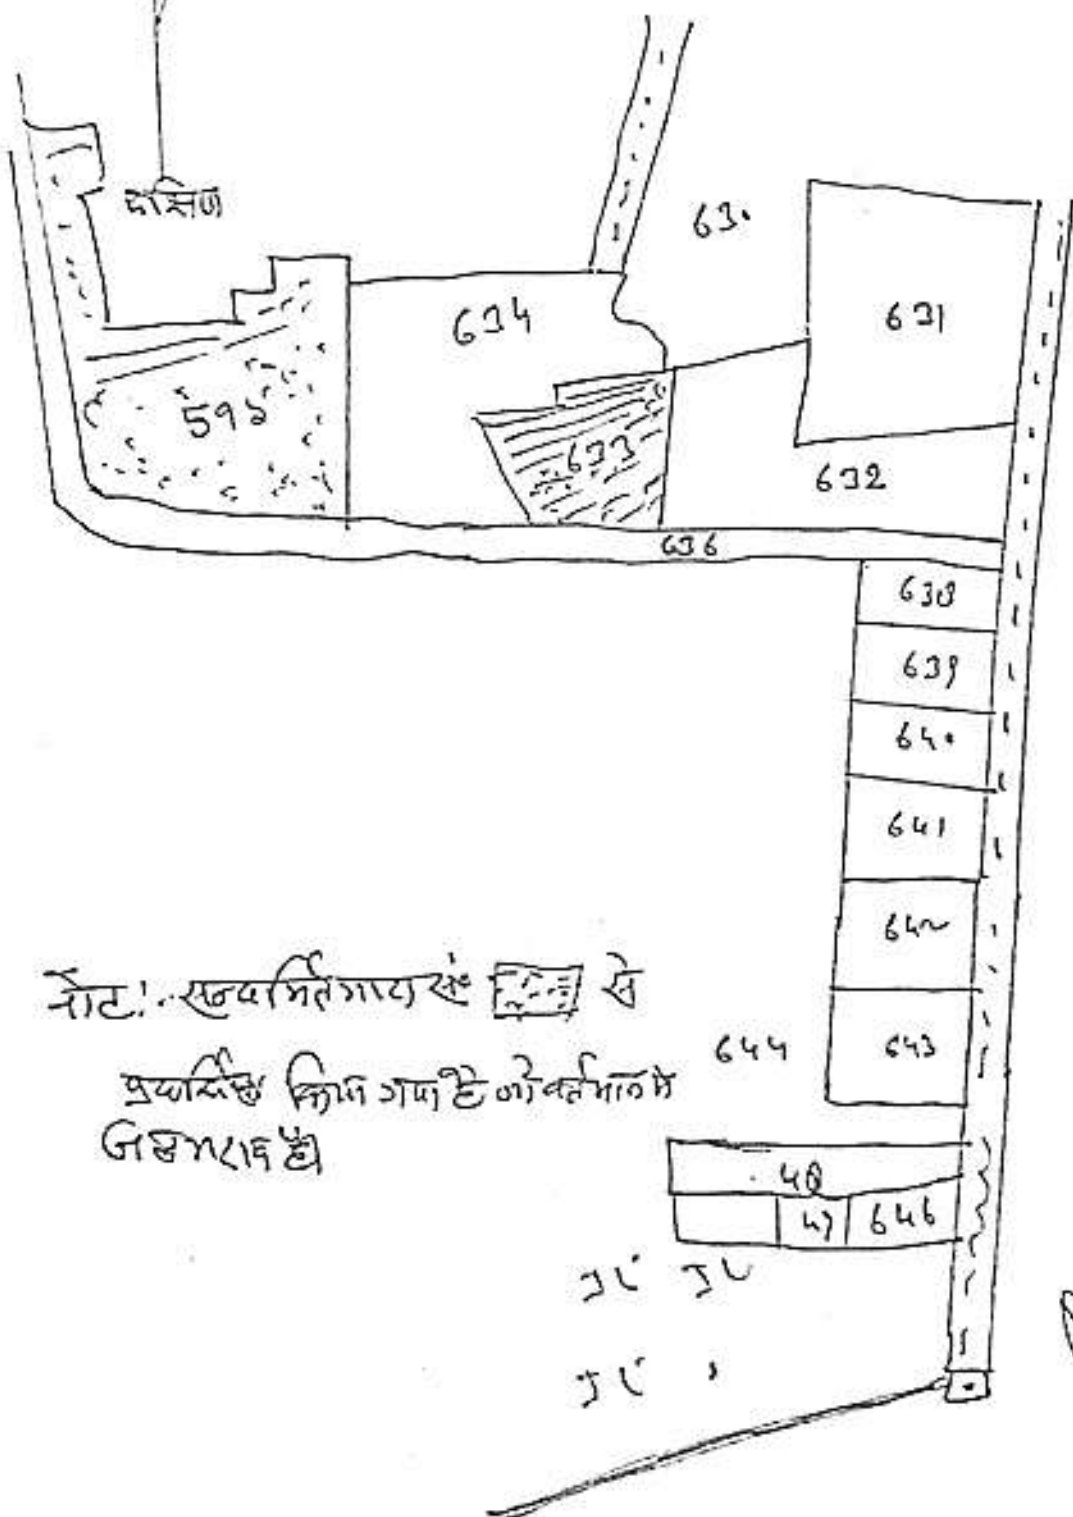 दक्षिण
630
631
634
596
633
632
636
638
639
640
641
642
नोट:- सन्दर्भित गाटा सं० से
644
643
प्रदर्शित किया गया है जो वर्तमान मे
जलमग्न है।
48
47 646